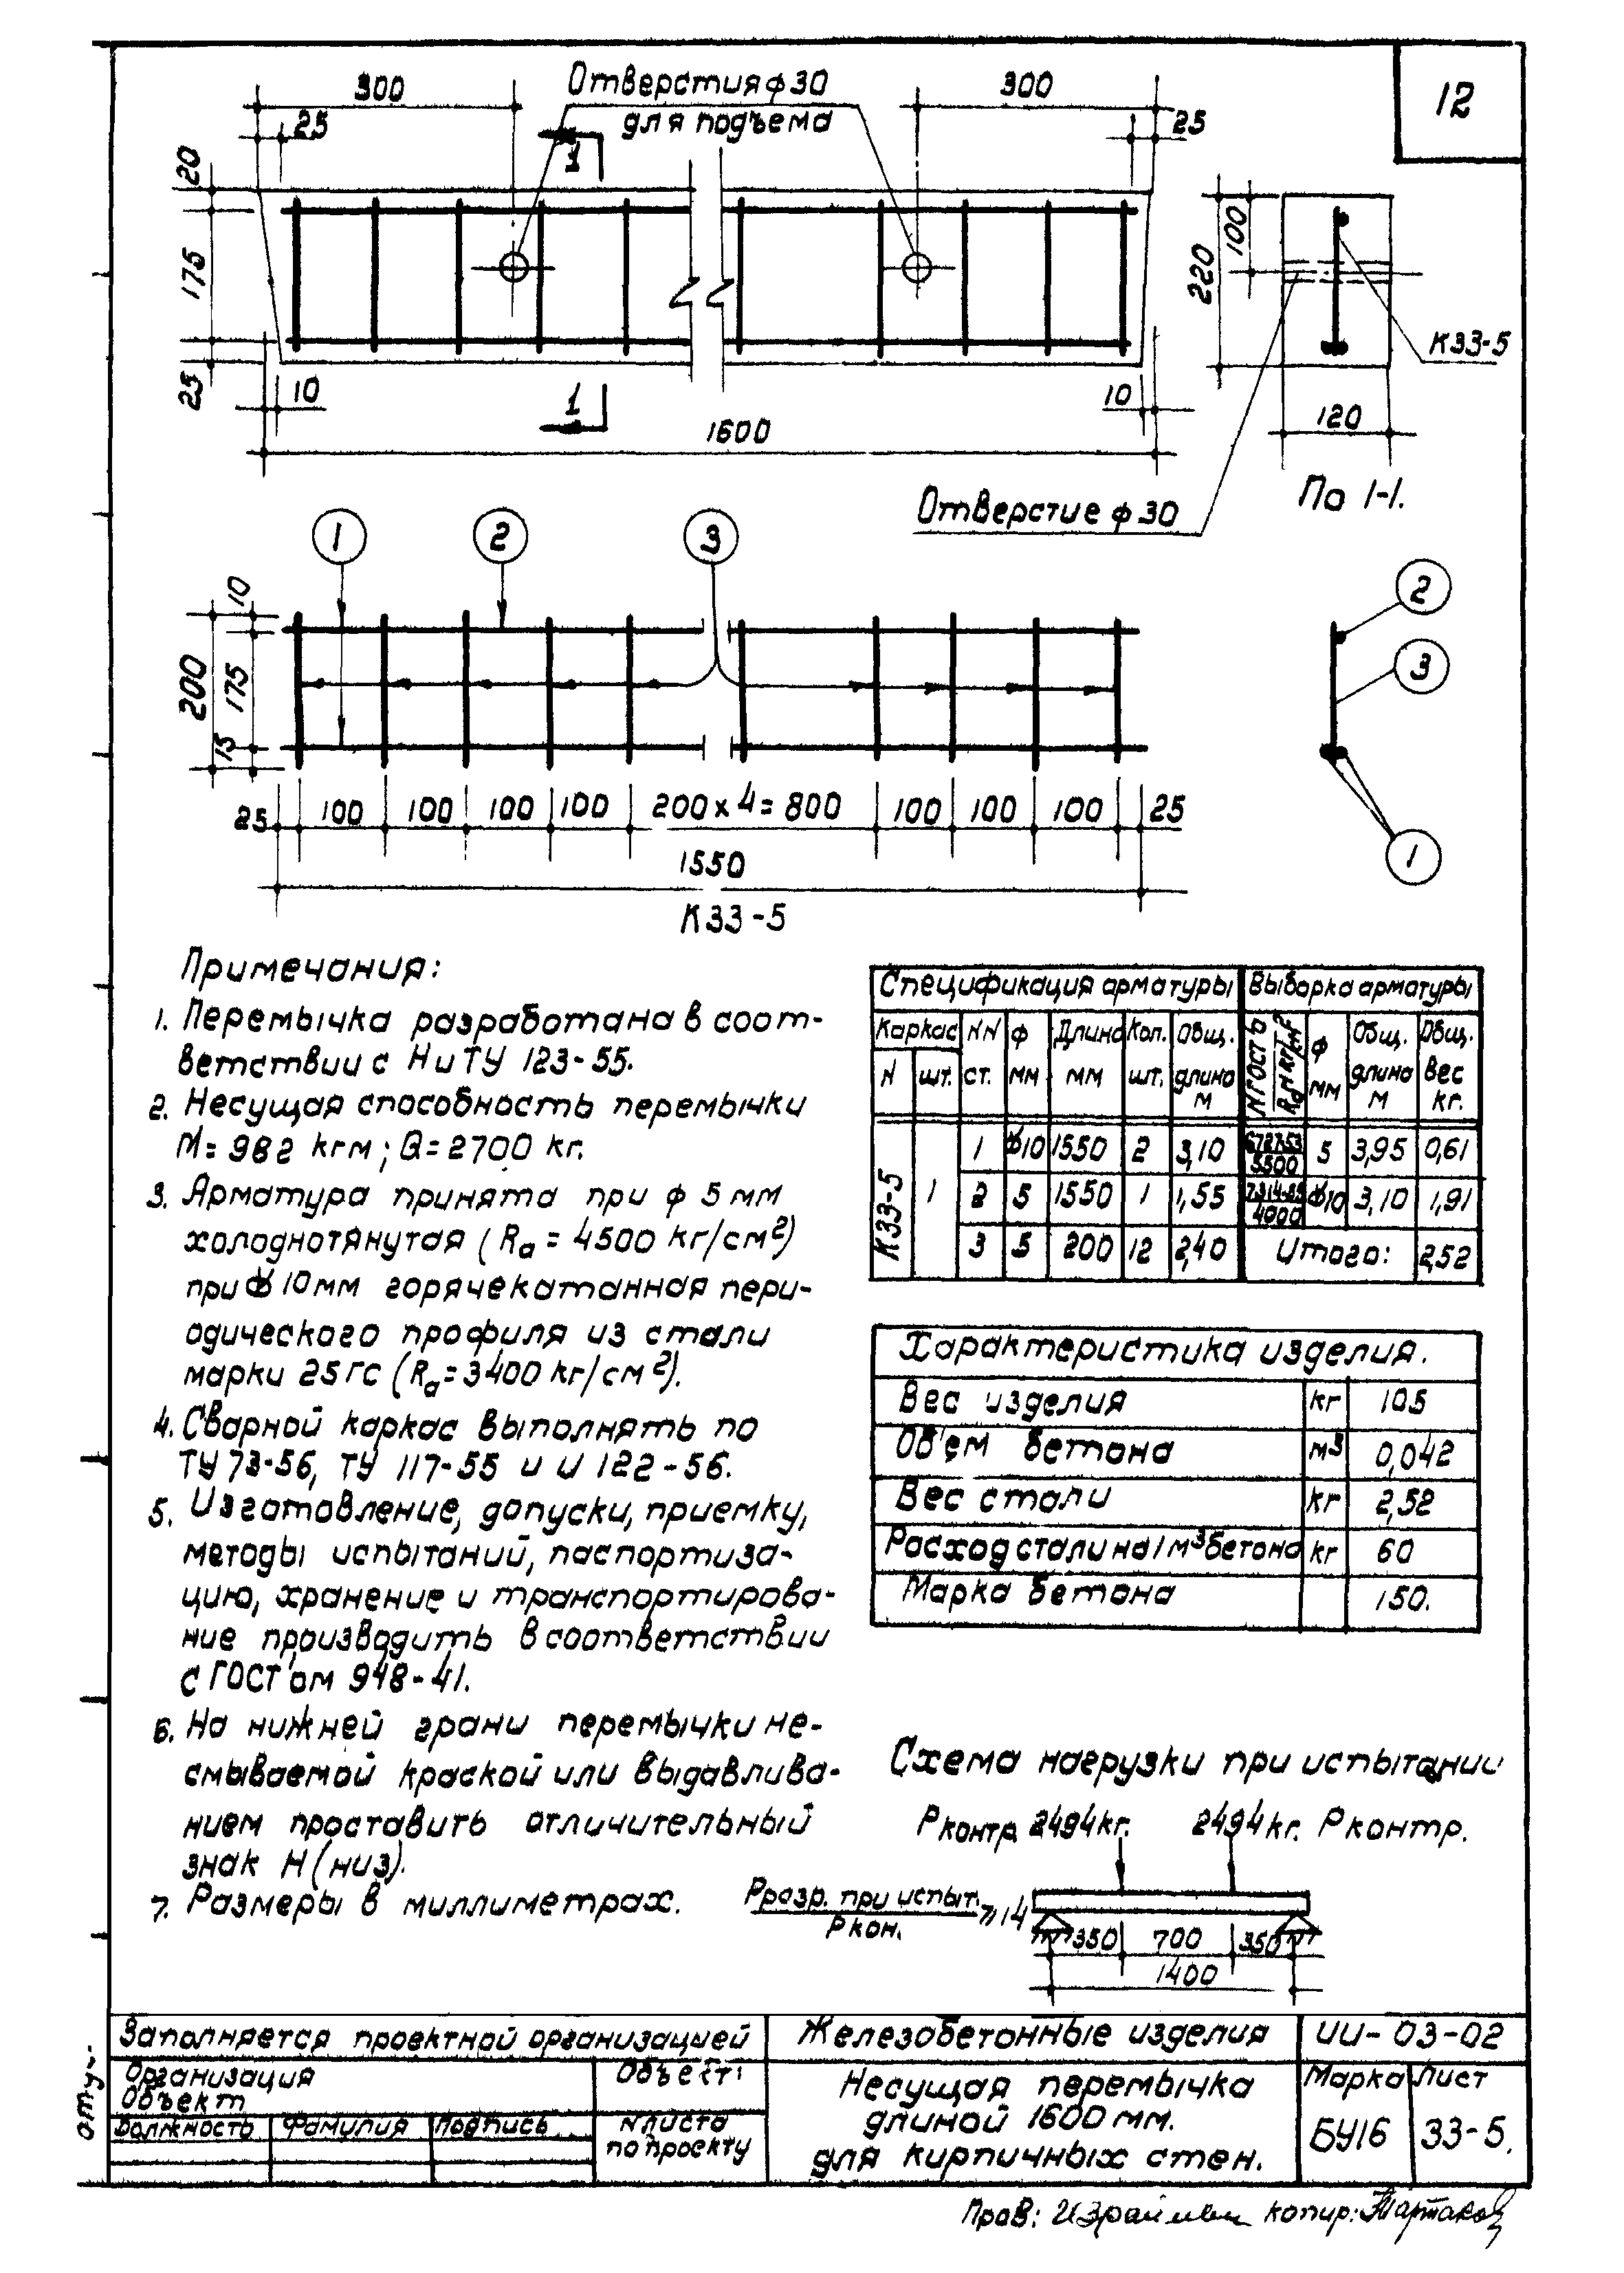 12
300
Отверстия ф 30
для подъема
300
25
25
1
20
175
25
10
1
10
1600
220
100
К33-5
120
По 1-1.
Отверстие ф 30
1
2
3
10
200
175
15
25
100
100
100
100
200 х 4 = 800
100
100
100
25
1550
К33-5
2
3
1
Примечания:
1. Перемычка разработана в соот-
ветствии с НиТУ 123-55.
2. Несущая способность перемычки
М = 982 кгм ; Q = 2700 кг.
3. Арматура принята при ф 5 мм
холоднотянутая ( Rа = 4500 кг/см²)
при ф 10мм горячекатанная пери-
одического профиля из стали
марки 25 ГС (Rа = 3400 кг/см²).
4. Сварной каркас выполнять по
ТУ 73-56, ТУ 117-55 и И 122-56.
5. Изготовление, допуски, приемку,
методы испытаний, паспортиза-
цию, хранение и транспортирова-
ние производить в соответствии
с ГОСТ'ом 948-41.
6. На нижней грани перемычки не-
смываемой краской или выдавлива-
нием проставить отличительный
знак Н (низ).
7. Размеры в миллиметрах.
Спецификация арматуры
Выборка арматуры
Каркас NN ф Длина Кол. Общ.
N шт. ст. мм мм шт. длина м
N ГОСТ'ь ф мм Общ. длина м Общ. вес кг.
К33-5 1
1 ф10 1550 2 3,10
6727-53 5500 5 3,95 0,61
2 5 1550 1 1,55
7314-55 4000 ф10 3,10 1,91
3 5 200 12 2,40
Итого: 2,52
Характеристика изделия.
Вес изделия кг 105
Об'ем бетона м³ 0,042
Вес стали кг 2,52
Расход стали на 1 м³ бетона кг 60
Марка бетона 150.
Схема нагрузки при испытании
Рконтр. 2494 кг. 2494 кг. Р контр.
Рразр. при испыт. ⩾ 1,4
Р кон.
350 700 350
1400
Заполняется проектной организацией
Организация
Объект
Объект
Должность Фамилия Подпись
N листа
по проекту
Железобетонные изделия
Несущая перемычка
длиной 1600 мм.
для кирпичных стен.
ИИ-03-02
Марка Лист
БУ16 33-5.
Пров: копир: